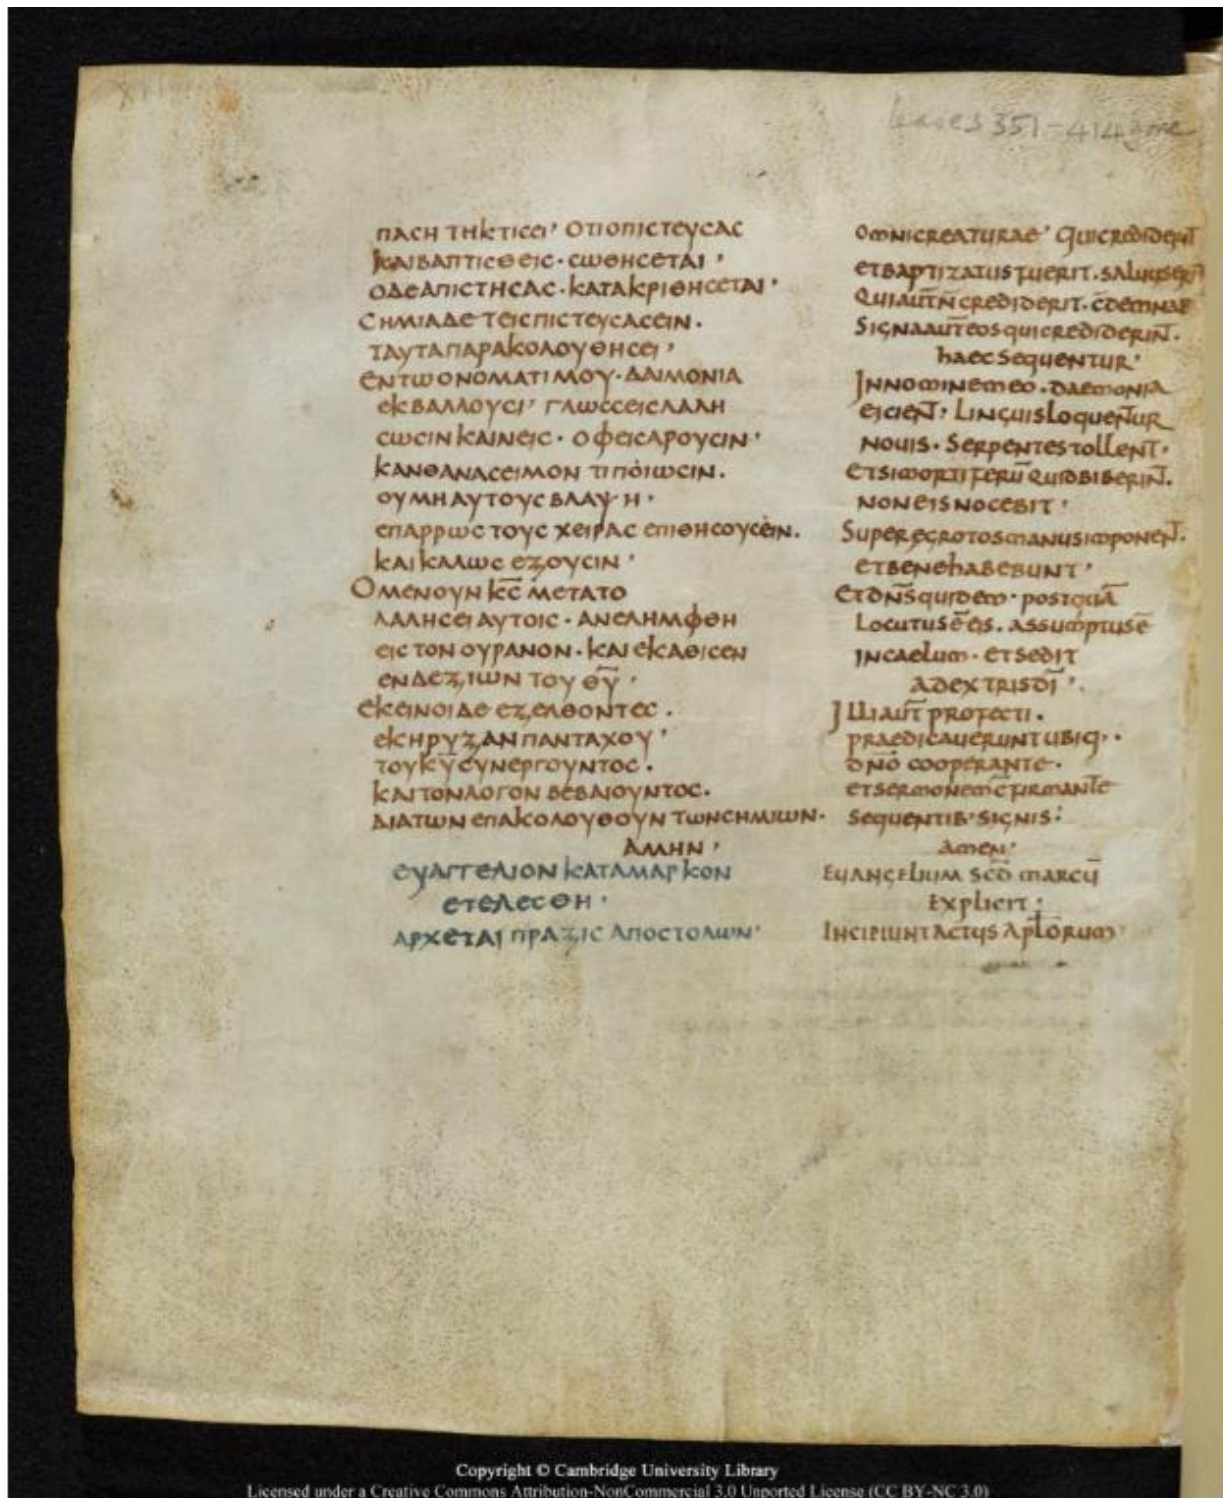 leaves 351-414 gone
ΠΑСΗ ΤΗΚΤΙСЄΙ' ΟΤΙΟΠΙСΤЄΥСΑС
ΚΑΙΒΑΠΤΙСΘЄΙС·СѠΘΗСЄΤΑΙ'
ΟΔЄΑΠΙСΤΗСΑС·ΚΑΤΑΚΡΙΘΗСЄΤΑΙ'
СΗΜΙΑΔЄ ΤЄΙСΠΙСΤЄΥСΑСЄΙΝ.
ΤΑΥΤΑΠΑΡΑΚΟΛΟΥΘΗСЄΙ'
ЄΝΤѠΟΝΟΜΑΤΙΜΟΥ·ΔΑΙΜΟΝΙΑ
ЄΚΒΑΛΛΟΥСΙ' ΓΛѠССЄΙСΛΑΛΗ
СѠСΙΝΚΑΙΝЄΙС·ΟΦЄΙСΑΡΟΥСΙΝ'
ΚΑΝΘΑΝΑСЄΙΜΟΝ ΤΙΠΟΙѠСΙΝ.
ΟΥΜΗΑΥΤΟΥСΒΛΑΨΗ·
ЄΠΑΡΡѠС ΤΟΥС ΧЄΙΡΑС ЄΠΙΘΗСΟΥСЄΙΝ.
ΚΑΙΚΑΛѠС ЄΞΟΥСΙΝ'
ΟΜЄΝΟΥΝ Κ̅С̅ ΜЄΤΑΤΟ
ΛΑΛΗСЄΙΑΥΤΟΙС·ΑΝЄΛΗΜΦΘΗ
ЄΙС ΤΟΝ ΟΥΡΑΝΟΝ·ΚΑΙЄΚΑΘΙСЄΝ
ЄΝΔЄΞΙѠΝ ΤΟΥ Θ̅Υ̅'
ЄΚЄΙΝΟΙΔЄ ЄΞЄΛΘΟΝΤЄС.
ЄΚΗΡΥΞΑΝΠΑΝΤΑΧΟΥ'
ΤΟΥΚ̅Υ̅СΥΝЄΡΓΟΥΝΤΟС.
ΚΑΙΤΟΝΛΟΓΟΝ ΒЄΒΑΙΟΥΝΤΟС.
ΔΙΑΤѠΝ ЄΠΑΚΟΛΟΥΘΟΥΝΤѠΝСΗΜΙѠΝ·
ΑΜΗΝ'
ЄΥΑΓΓЄΛΙΟΝ ΚΑΤΑΜΑΡΚΟΝ
ЄΤЄΛЄСΘΗ'
ΑΡΧЄΤΑΙ ΠΡΑΞΙС ΑΠΟСΤΟΛѠΝ'
omnicreaturae' Quicrediderit̅
etbaptizatusfuerit.saluus
Quiaut̅n̅crediderit.c̅demna
Signaaut̅eosquicrediderin̅t.
haecsequentur'
Innominemeo.daemonia
eicien̅t' Linguisloquen̅tur
nouis.Serpentestollen̅t.
etsimortiferu̅quidbiberin̅t.
noneisnocebit'
Superegrotosmanusimponen̅t.
etbenehabebunt'
etd̅n̅squidem·postqua̅
Locutuse̅eis.assumptuse̅
incaelum·etsedit
adextrisd̅i̅'
Illiaut̅profecti.
praedicaueruntubiq··
d̅n̅o̅ cooperante.
etsermonemc̅firmante
sequentib·signis:
amen'
Euangelium sc̅d̅ marcu̅
Explicit:
Incipiunt Actus Apl̅orum
Copyright © Cambridge University Library
Licensed under a Creative Commons Attribution-NonCommercial 3.0 Unported License (CC BY-NC 3.0)